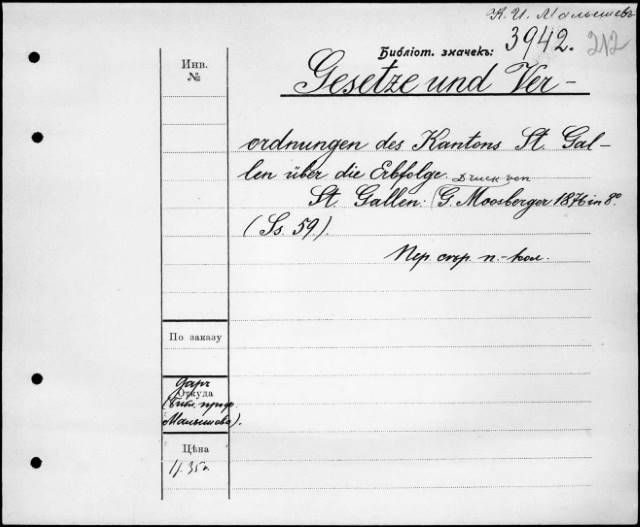 К. И. Малышевъ
Библіот. значекъ: 3942. 212
Инв.
№
Gesetze und Ver-
ordnungen des Kantons St. Gal-
len über die Erbfolge.
Druck von
St. Gallen: (G. Moosberger 1876 in 8°
(Ss. 59).
Пер. съ п.-кол.
По заказу
Даръ
Откуда
(Библ. проф.
Малышева).
Цѣна
1 р. 35 к